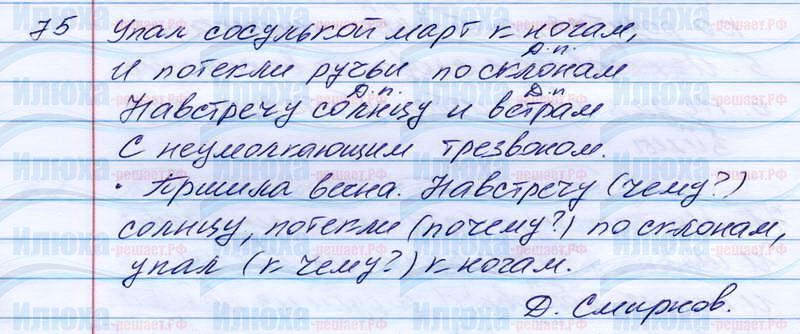 75 Упал сосулькой март к ногам,
Д.п.
И потекли ручьи по склонам
Д.п. Д.п
Навстречу солнцу и ветрам
С неумолкающим трезвоном.
• Пришла весна. Навстречу (чему?)
солнцу, потекли (по чему?) по склонам,
упал (к чему?) к ногам.
Д. Смирнов.
Илюха -решает.РФ